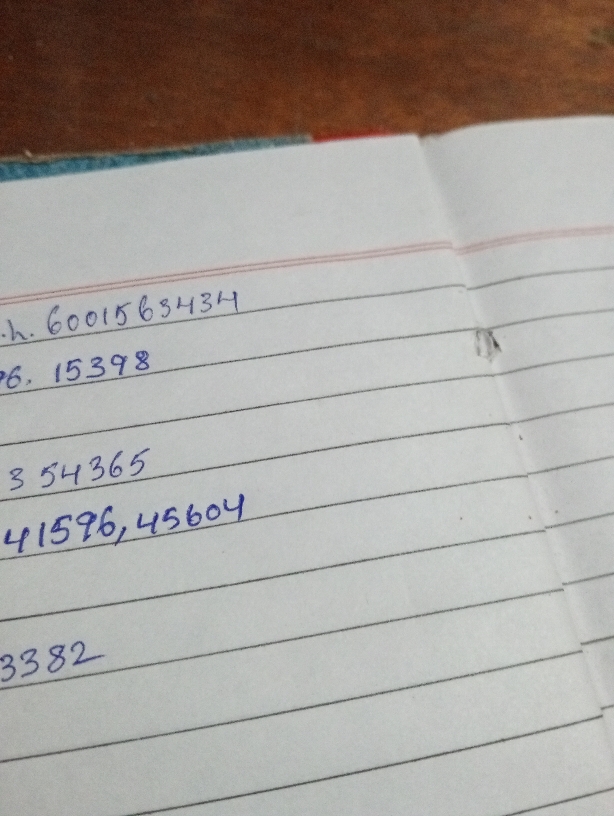 .h. 6001563434
96. 15398
3 54365
41596, 45604
3382